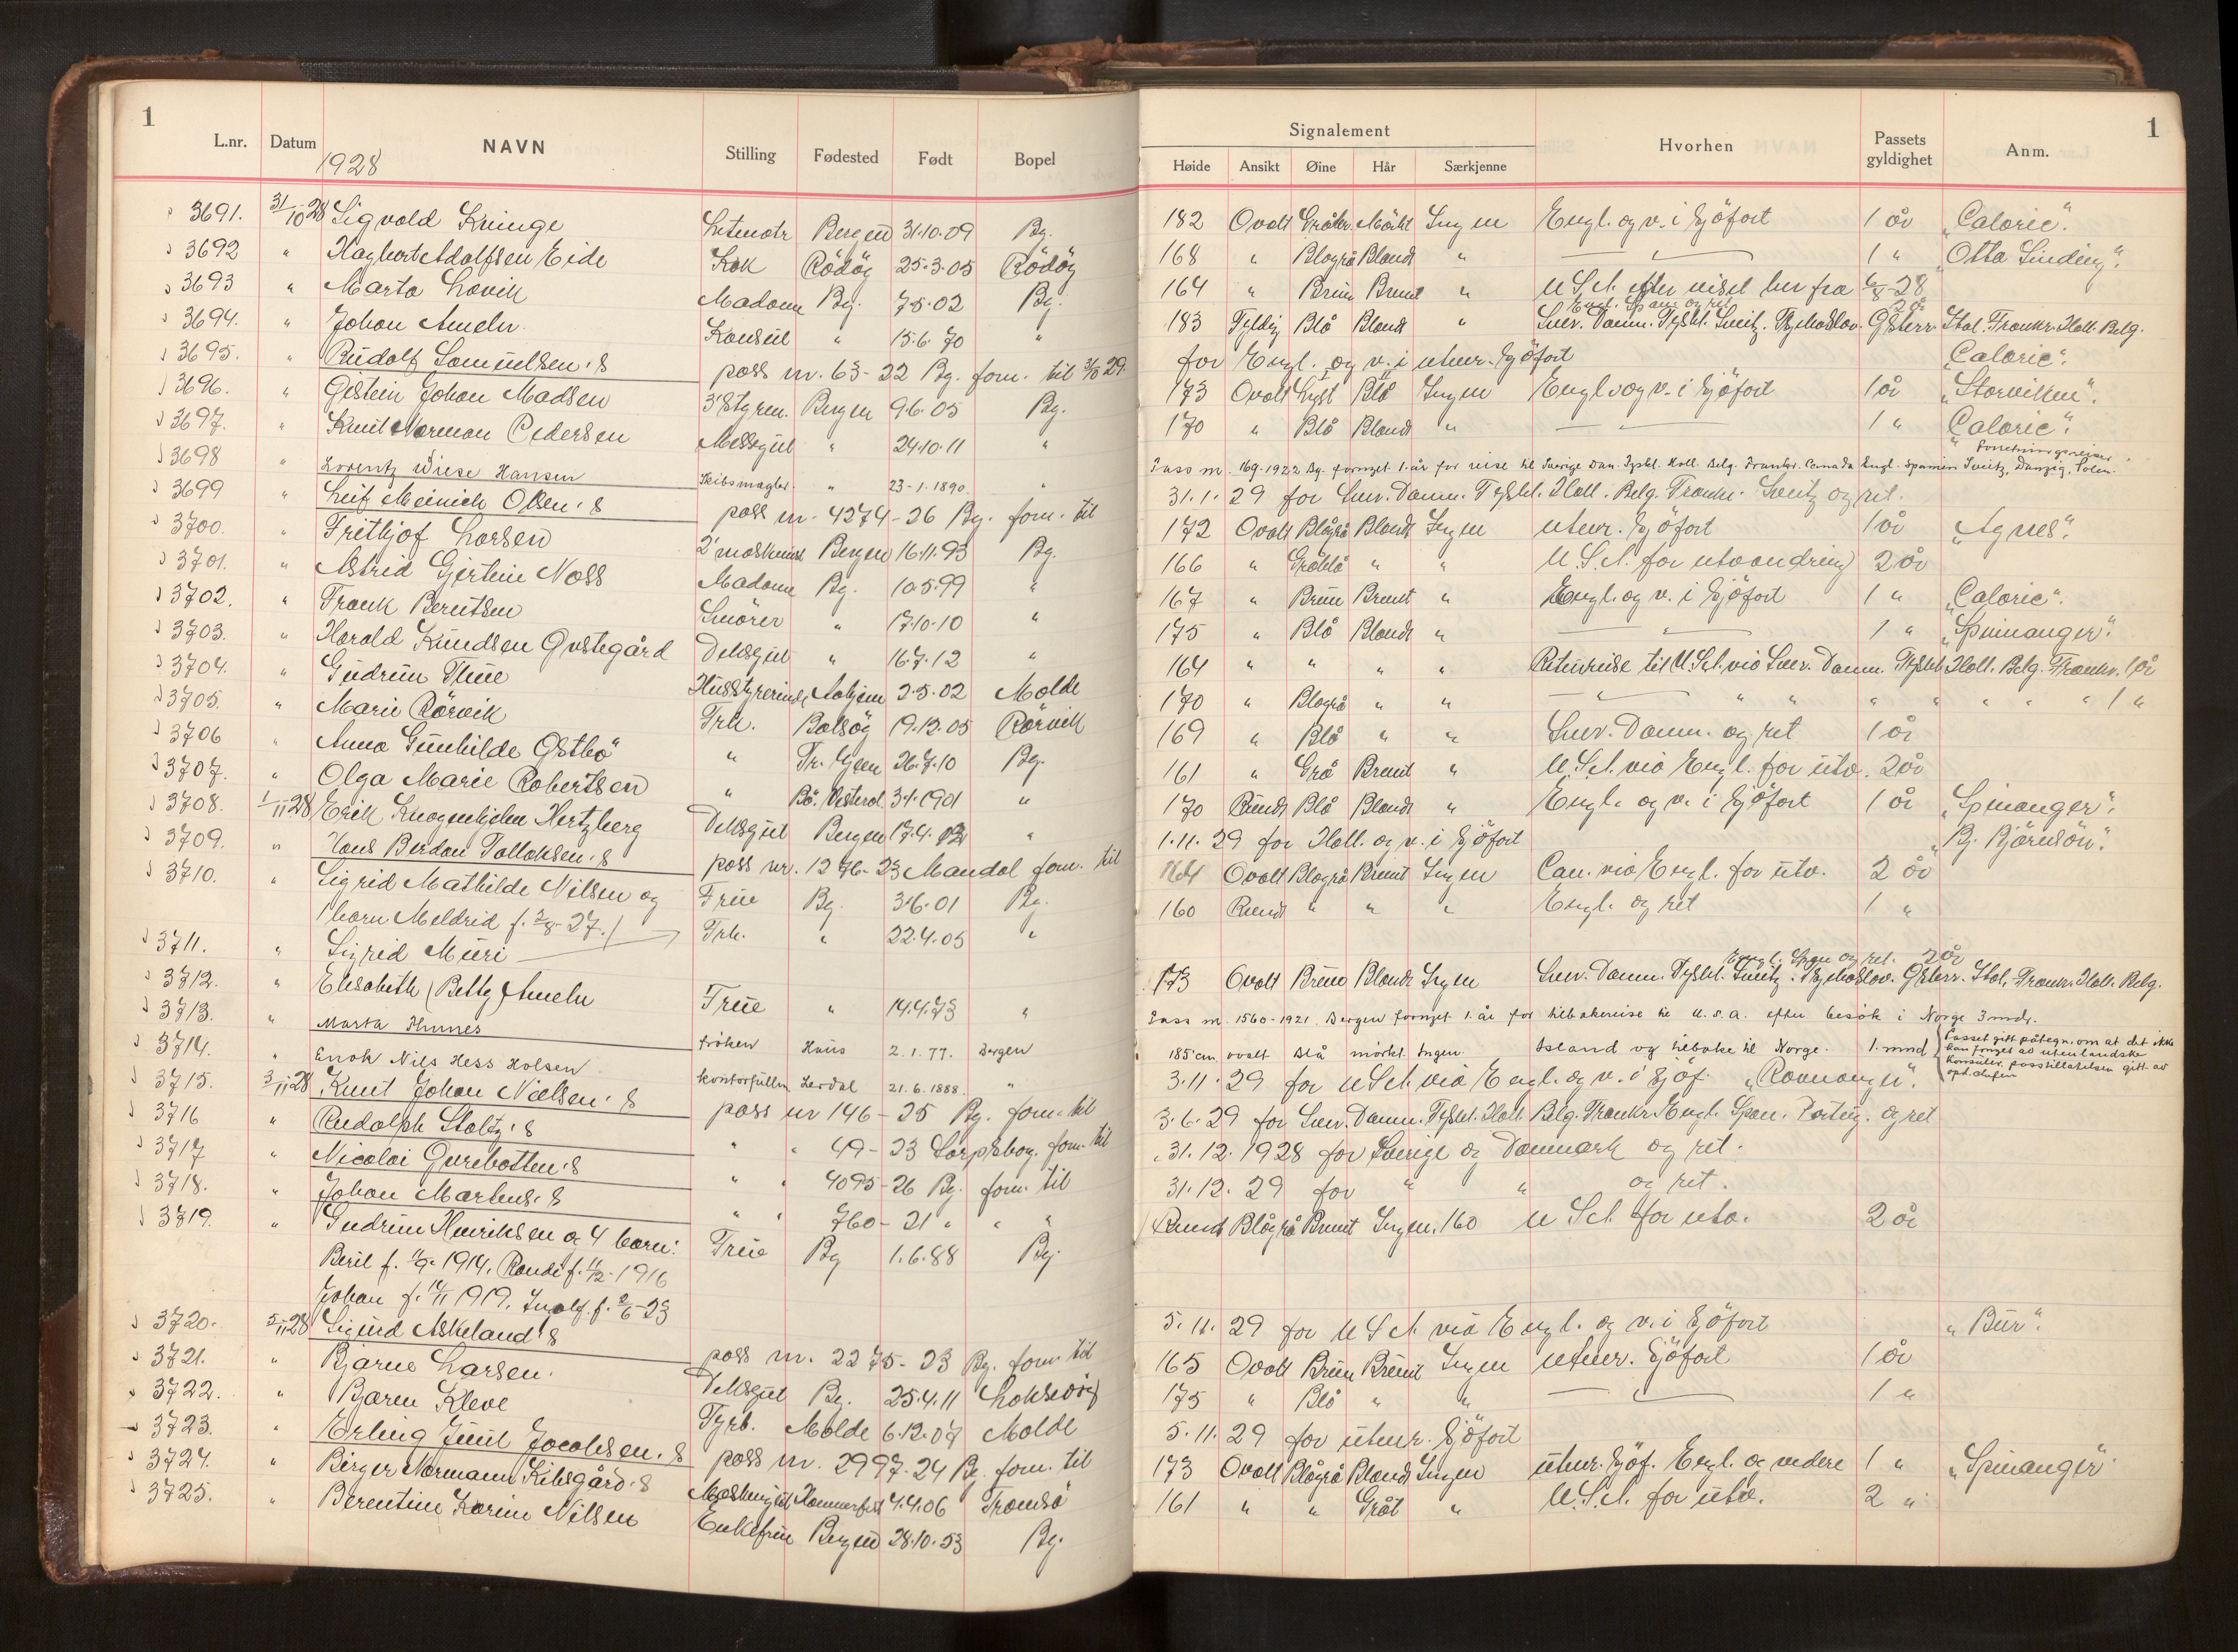 1
L.nr. Datum NAVN Stilling Fødested Født Bopel
1928
3691. 31/10 28 Sigvald Kringe Letmatr Bergen 31.10.09 Bg.
3692 " Dagbert Adolfsen Eide Kok Rödöy 25.3.05 Rödöy
3693 " Marta Lovik Madame Bg. 7.5.02 Bg.
3694. " Johan Ameln Konsul " 15.6.70 "
3695. " Rudolf Samuelsen's pass nr. 63-22 Bg. forn. til 31/10 29.
3696. " Øistein Johan Madsen 3' Styrm. Bergen 9.6.05 Bg.
3697. " Knut Norman Pedersen Messgut " 24.10.11 "
3698 " Lorentz Wiese Hansen Skibsmægler. " 23-1.1890. "
3699 " Leif Meinich Olsen's pass nr. 4274-26 Bg. forn. til
3700. " Frithjof Larsen 2' maskinist Bergen 16.11.93 Bg.
3701. " Astrid Gjertine Noss Madame Bg. 10.5.99 "
3702. " Frank Berntsen Smörer " 17.10.10 "
3703. " Harald Knudsen Øvstegård Deksgut " 16.7.12 "
3704. " Gudrun Thue Husstyrerinde 2.5.02 Molde
3705. " Marie Rörvik Frk. Bolsöy 19.12.05 Rörvik
3706 " Anna Gunhilde Østbö " Tr. hjem 26.7.10 Bg.
3707. " Olga Marie Robertsen " Bö. Vesterål 3.1.1901 "
3708. 1/11 28 Erik Knagenhjelm Hertzberg Deksgut Bergen 17.4. "
3709. " Hans Berdon Tallaksen's pass nr. 1276-23 Mandal forn. til
3710. " Sigrid Mathilde Nilsen og Frue Bg. 3.6.01 Bg.
1 barn Meldrid f. 2/8-27.) Frk. " 22.4.05 "
3711. " Sigrid Muri
3712. " Elisabeth (Betty) Ameln Frue " 14.4.73 "
3713. " Marta Hunnes fröken Haus 2.1.77. Bergen
3714. " Enok Nils Hess Holsen kontorfullm Lerdal 21.6.1888. "
3715. 3/11 28 Knut Johan Nielsen's pass nr 146-25 Bg. forn. til
3716 " Rudolph Stoltz's " " 49-23 Sarpsborg. forn. til
3717 " Nicolai Gurebotten's " " 4095-26 Bg. forn. til
3718. " Johan Martens's " " 760-21 " " "
3719. " Gudrun Henriksen og 4 barn: Frue Bg 1.6.88 Bg.
Beril f. 11/9-1914. Randi f. 11/12-1916
Johan f. 14/11 1919. Ingolf f. 2/6-23
3720. 5/11 28 Sigurd Askeland's pass nr. 2275-23 Bg. forn. til
3721. " Bjarne Larsen. Deksgut Bg. 25.4.11 Laksevåg
3722. " Bjarne Kleve Fyrb. Molde 6.12.07 Molde
3723. " Erling Juul Jacobsen's pass nr. 2997-24 Bg. forn. til
3724. " Birger Normann Kilsgård's Maskinist Hammerfest 4.4.06 Tromsö
3725. " Berentine Karine Nilsen Enkefrue Bergen 28.10.53 Bg.
1
Signalement Hvorhen Passets gyldighet Anm.
Høide Ansikt Øine Hår Særkjenne
182 Ovalt Gråbr. Mörkt Ingen Engl. og v. i Sjöfart 1 år "Caloric".
168 " Blågrå Blondt " — " — 1 " "Otto Sinding".
164 " Brun Brunt " U.S.A. efter visit her fra 6/8-28
Engl. Span og ret 2 år
183 Fyldig Blå Blondt " Sver. Danm. Tyskl. Sveitz. Tjekoslov. Østerr. Ital. Frankr. Holl. Belg.
for Engl. og v. i utenr. Sjöfart "Caloric".
173 Ovalt Lyst Blå Ingen Engl. og v. i Sjöfart 1 år "Storviken".
170 " Blå Blondt " — " — 1 " "Caloric".
Forretningsreiser.
Pass nr. 169-1922 Bg. fornyet 1 år for reise til Sverige Dan. Tyskl. Holl. Belg. Frankr. Canada Engl. Spanien Sveitz, Danzig, Polen.
31.1.29 for Sver. Danm. Tyskl. Holl. Belg. Frankr. Sveitz og ret.
172 Ovalt Blågrå Blondt Ingen utenr. Sjöfart 1 år "Agnes".
166 " Gråblå " " U.S.A. for utvandring 2 år
167 " Brun Brunt " Engl. og v. i Sjöfart 1 " "Caloric".
175 " Blå Blondt " — " — 1 " "Spinanger".
164 " " " " Returreise til U.S.A. via Sver. Danm. Tyskl. Holl. Belg. Frankr. 1 år
170 " Blågrå " " — " — " " " " " " " 1 "
169 " Blå " " Sver. Danm. og ret 1 år
161 " Grå Brunt " U.S.A. via Engl. for utv. 2 år
170 Rundt Blå Blondt " Engl. og v. i Sjöfart 1 år "Spinanger".
1.11.29 for Holl. og v. i Sjöfart "Bj. Björnson".
164 Ovalt Blågrå Brunt Ingen Can. via Engl. for utv. 2 år
160 Rundt " " " Engl. og ret 1 "
Engl. Span og ret. 2 år
173 Ovalt Brune Blondt Ingen Sver. Danm. Tyskl. Sveitz. Tjekoslov. Østerr. Ital. Frankr. Holl. Belg.
Pass nr. 1560-1921 Bergen fornyet 1 år for tilbakereise til U.S.A. efter besök i Norge 3 mdr.
185 cm ovalt Blå mörkt. Ingen. Island og tilbake til Norge. 1. mnd Passet gitt påtegn. om at det ikke
kan fornyet av utenlandske
konsuler. passtillatelsen gitt av
3.11.29 for U.S.A. via Engl. og v. i Sjöf. "Ravnanger".
3.6.29 for Sver. Danm. Tyskl. Holl. Belg. Frankr. Engl. Span. Portug. og ret
31.12.1928 for Sverige og Danmark og ret.
31.12.29 for " " og ret.
Rundt Blågrå Brunt Ingen. 160 U.S.A. for utv. 2 år
5.11.29 for U.S.A. via Engl. og v. i Sjöfart "Bur".
165 Ovalt Brun Brunt Ingen utenr. Sjöfart 1 år
175 " Blå " " — " — 1 "
5.11.29 for utenr. Sjöfart
173 Ovalt Blågrå Blondt Ingen utenr. Sjöf. Engl. og videre 1 " "Spinanger"
161 " " Grått " U.S.A. for utv. 2 "